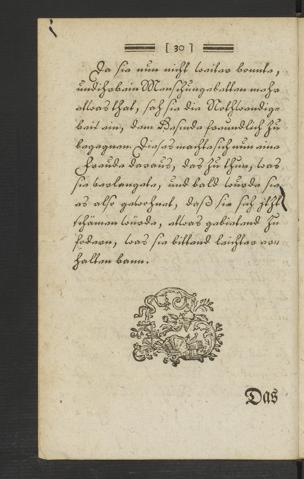 [ 30 ]
Da sie nun nicht weiter konnte,
und ihr kein Mensch ungebetten mehr
etwas that, sah sie die Nothwendig-
keit ein, dem Gesinde freundlich zu
begegnen. Dieses machte sich nun eine
Freude daraus, das zu thun, was
sie verlangte, und bald wurde sie
es also gewohnet, daß sie sich jtzt
schämen würde, etwas gebietend zu
fodern, was sie bittend leichter er-
halten kann.
Das